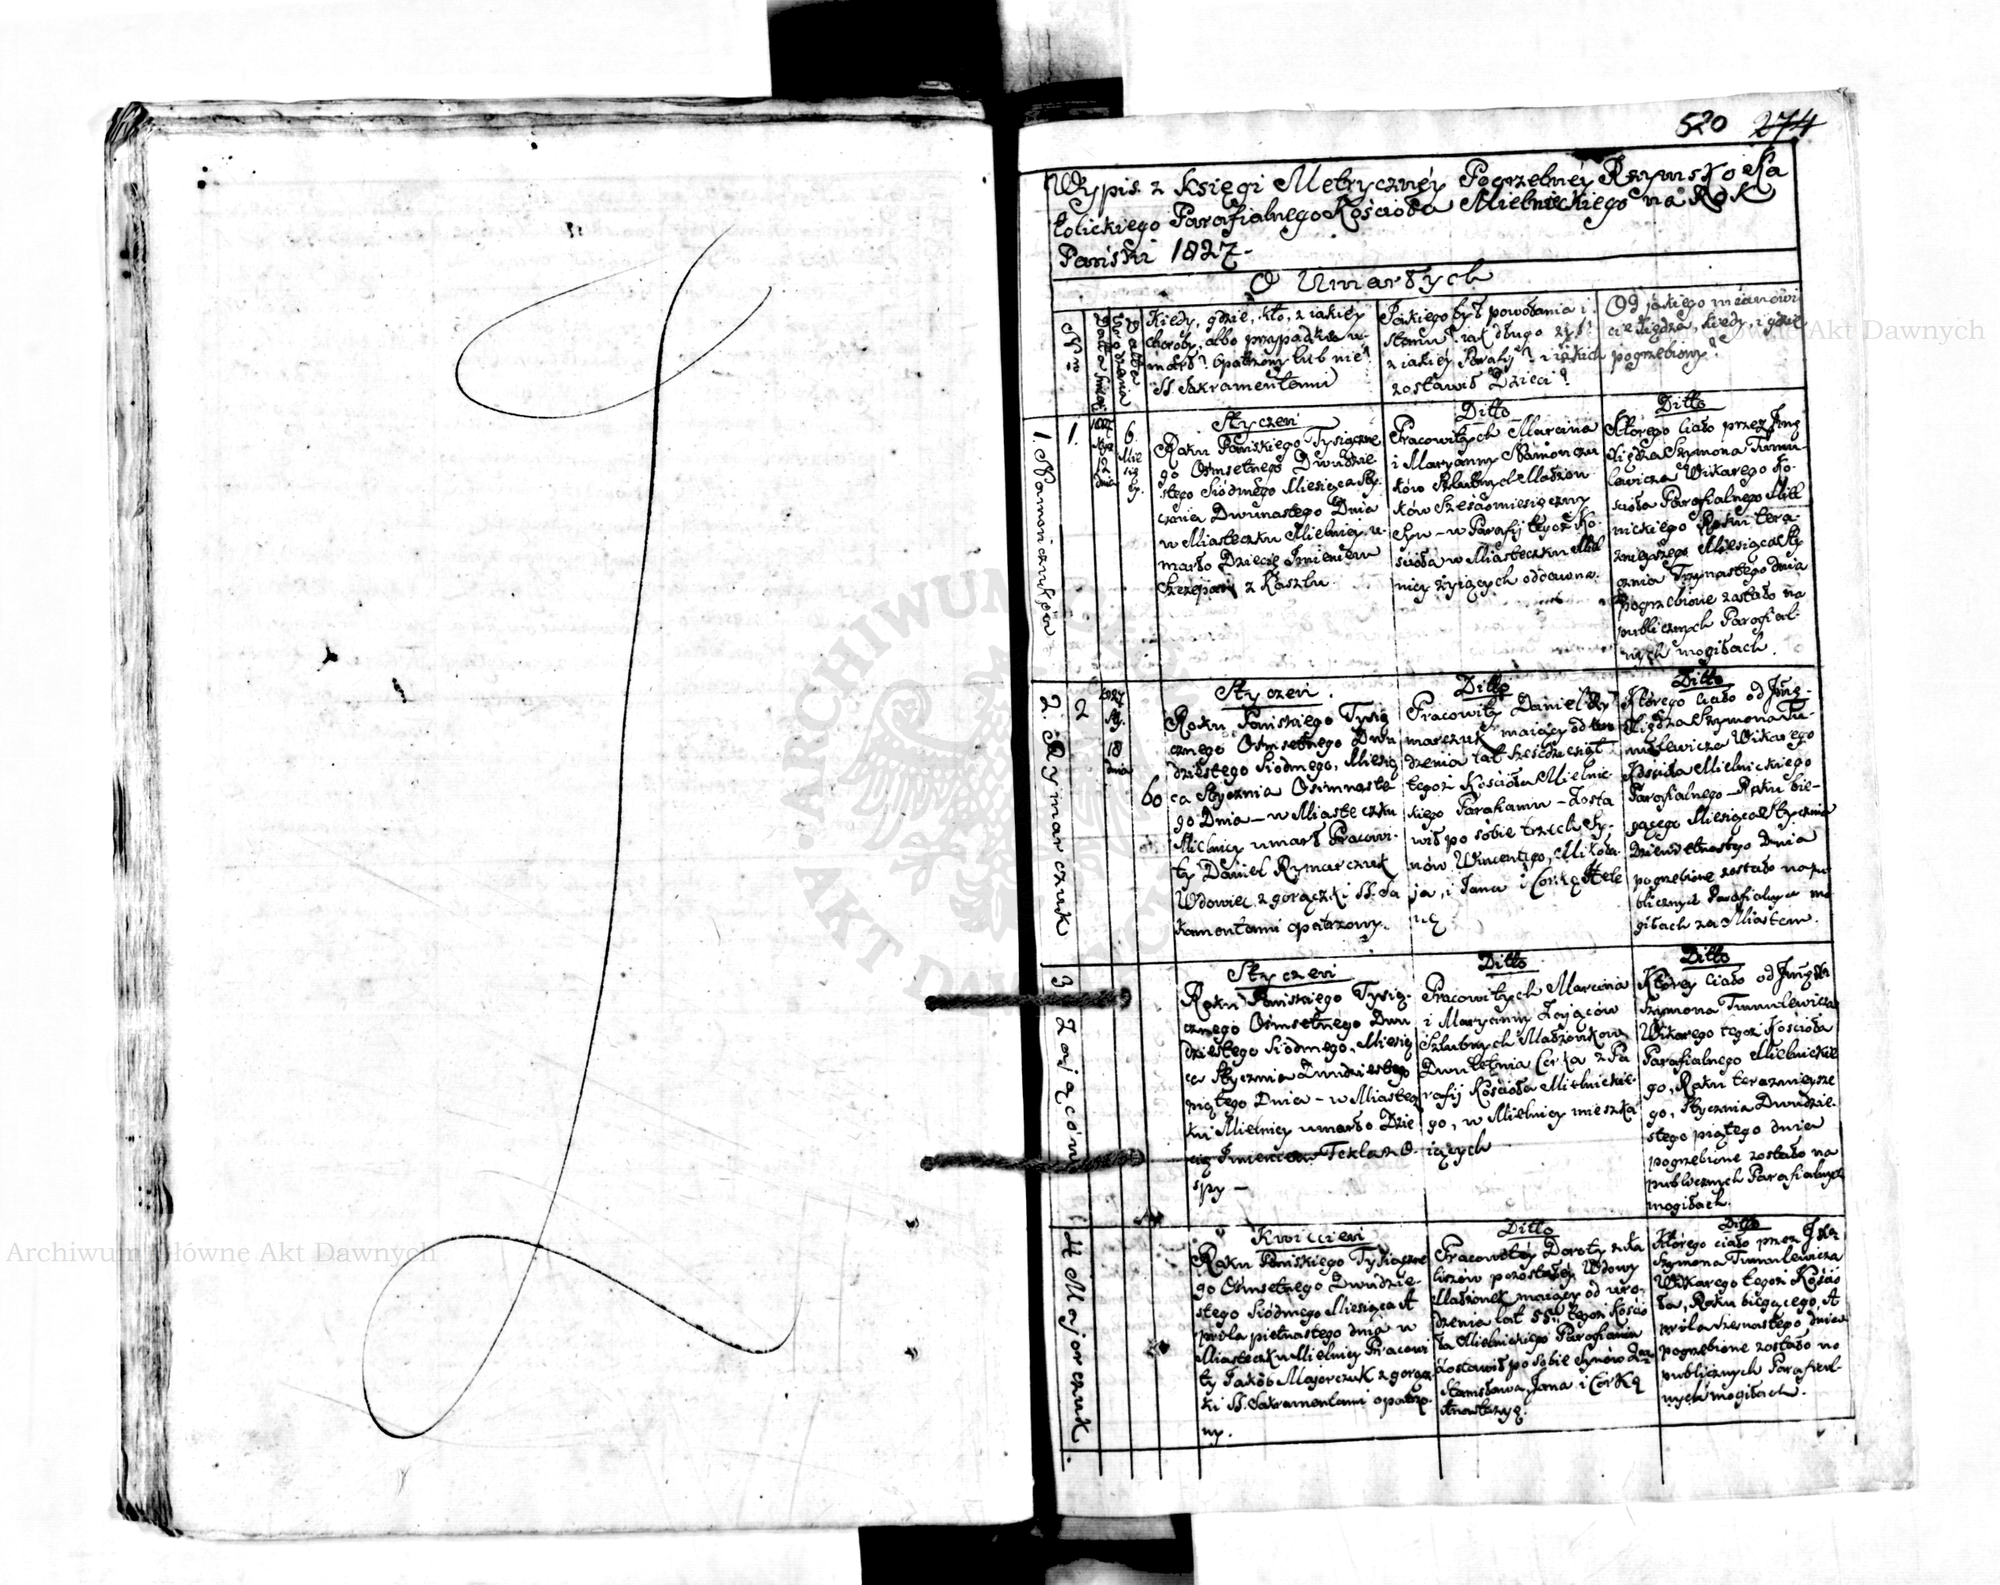 520 274
Wypis z Księgi Metrycznéy Pogrzebnéy Rzymsko Ka
tolickiego Parafialnego Kościoła Mielnickiego na Rok
Pański 1827.
O Umarłych
Nrm
Kiedy, gdzie, kto, z iakiéy
choroby, albo przypadku u-
marł? Opatrzony lub nie?
SS. Sakramentami
Jakiego był powołania i
stanu? iak długo żył?
z iakiéy Parafij? i iakich
zostawił Dzieci?
Od jakiego mianowi
cie Xiędza, kiedy, i gdzie
pogrzebiony?
1. Namonczuków
1.
1827
dnia
6.
Mie
się
cy.
Styczeń
Roku Pańskiego Tysiączne
go Ośmsetnego Dwudzie-
stego Siódmego Miesiąca Sty-
cznia Dwunastego Dnia
w Miasteczku Mielnicy u-
marło Dziecie Imieniem
Szczepan z Kaszlu.
Ditto
Pracowitych Marcina
i Maryanny Namonczu
ków Szlubnych Małżon
ków Sześciomiesięczny
Syn – w Parafij tegoż Ko-
ścioła w Miasteczku Miel
nicy żyiących odda­wna.
Ditto
Którego ciało przez Jmę
Xiędza Szymona Tumu-
lewicza Wikarego Ko-
ścioła Parafialnego Miel
nickiego Roku tera-
znieyszego Miesiąca Sty
cznia Trzynastego dnia
pogrzebione zostało na
publicznych Parafial-
nych mogiłach.
2. Rymarczuk
2
1827
Sty.
18
dnia
60
Styczeń.
Roku Pańskiego Tysią
cznego Ośmsetnego Dwu
dziestego Siódmego, Miesią
ca Stycznia Osimnaste
go Dnia – w Miasteczku
Mielnicy umarł Pracowi-
ty Daniel Rymarczuk
Wdowiec z gorączki SS. Sa
kramentami opatrzony.
Ditto
Pracowity Daniel Ry
marczuk maiący od uro
dzenia lat sześćdziesiąt
tegoż Kościoła Mielnic-
kiego Parafianin – Zosta
wił po sobie trzech Sy-
nów Wincentego, Mikoła-
ja, i Jana i Corkę Hele
nę
Ditto
Którego ciało od Jmę-
Xiędza Szymona Tu-
mulewicza Wikarego
Kościoła Mielnickiego
Parafialnego – Roku bie-
żącego Miesiąca Stycznia
Dziewietnastego Dnia
pogrzebione zostało na pu-
blicznych Parafialnych mo
giłach za Miastem.
3 Zającóny
Styczeń
Roku Pańskiego Tysią-
cznego Ośmsetnego Dwu
dziestego Siódmego, Miesią
ca Stycznia Dwudziestego
piątego Dnia – w Miastecz
ku Mielnicy umarło Dzie
cię Imieniem Tekla z O-
spy –
Ditto
Pracowitych Marcina
i Maryanny Zającow
Szlubnych Małżonkow
Dwuletnia Corka z Pa
rafij Kościoła Mielnickie-
go, w Mielnicy mieszka
iących
Ditto
Któréy ciało od Jmę Xa
Szymona Tumulewicza
Wikarego tegoż Kościoła
Parafialnego Mielnickie
go, Roku teraznieysze
go, Stycznia Dwudzie-
stego piątego dnia
pogrzebione zostało na
publicznych Parafialnych
mogiłach.
4 Majorczuk.
Kwiecień
Roku Pańskiego Tysiączne
go Ośmsetnego Dwudzie-
stego Siódmego Miesiąca A
prila pietnastego dnia w
Miasteczku Mielnicy Pracowi
ty Jakób Majorczuk z gorącz
ki SS. Sakramentami opatrzo-
ny.
Ditto
Pracowitéy Doroty
pozostałéy Wdowy
Małżonek maiący od uro-
dzenia lat 55. tegoż Kościo
ła Mielnickiego Parafianin
Zostawił po sobie Synów
Stanisława, Jana i Corkę
Anastazyę.
Ditto
Którego ciało przez J. Xa
Szymona Tumulewicza
Wikarego tegoż Kościo
ła, Roku bieżącego, A
prila szesnastego dnia
pogrzebione zostało na
publicznych Parafial-
nych mogiłach.
Archiwum Główne Akt Dawnych
Archiwum Główne Akt Dawnych